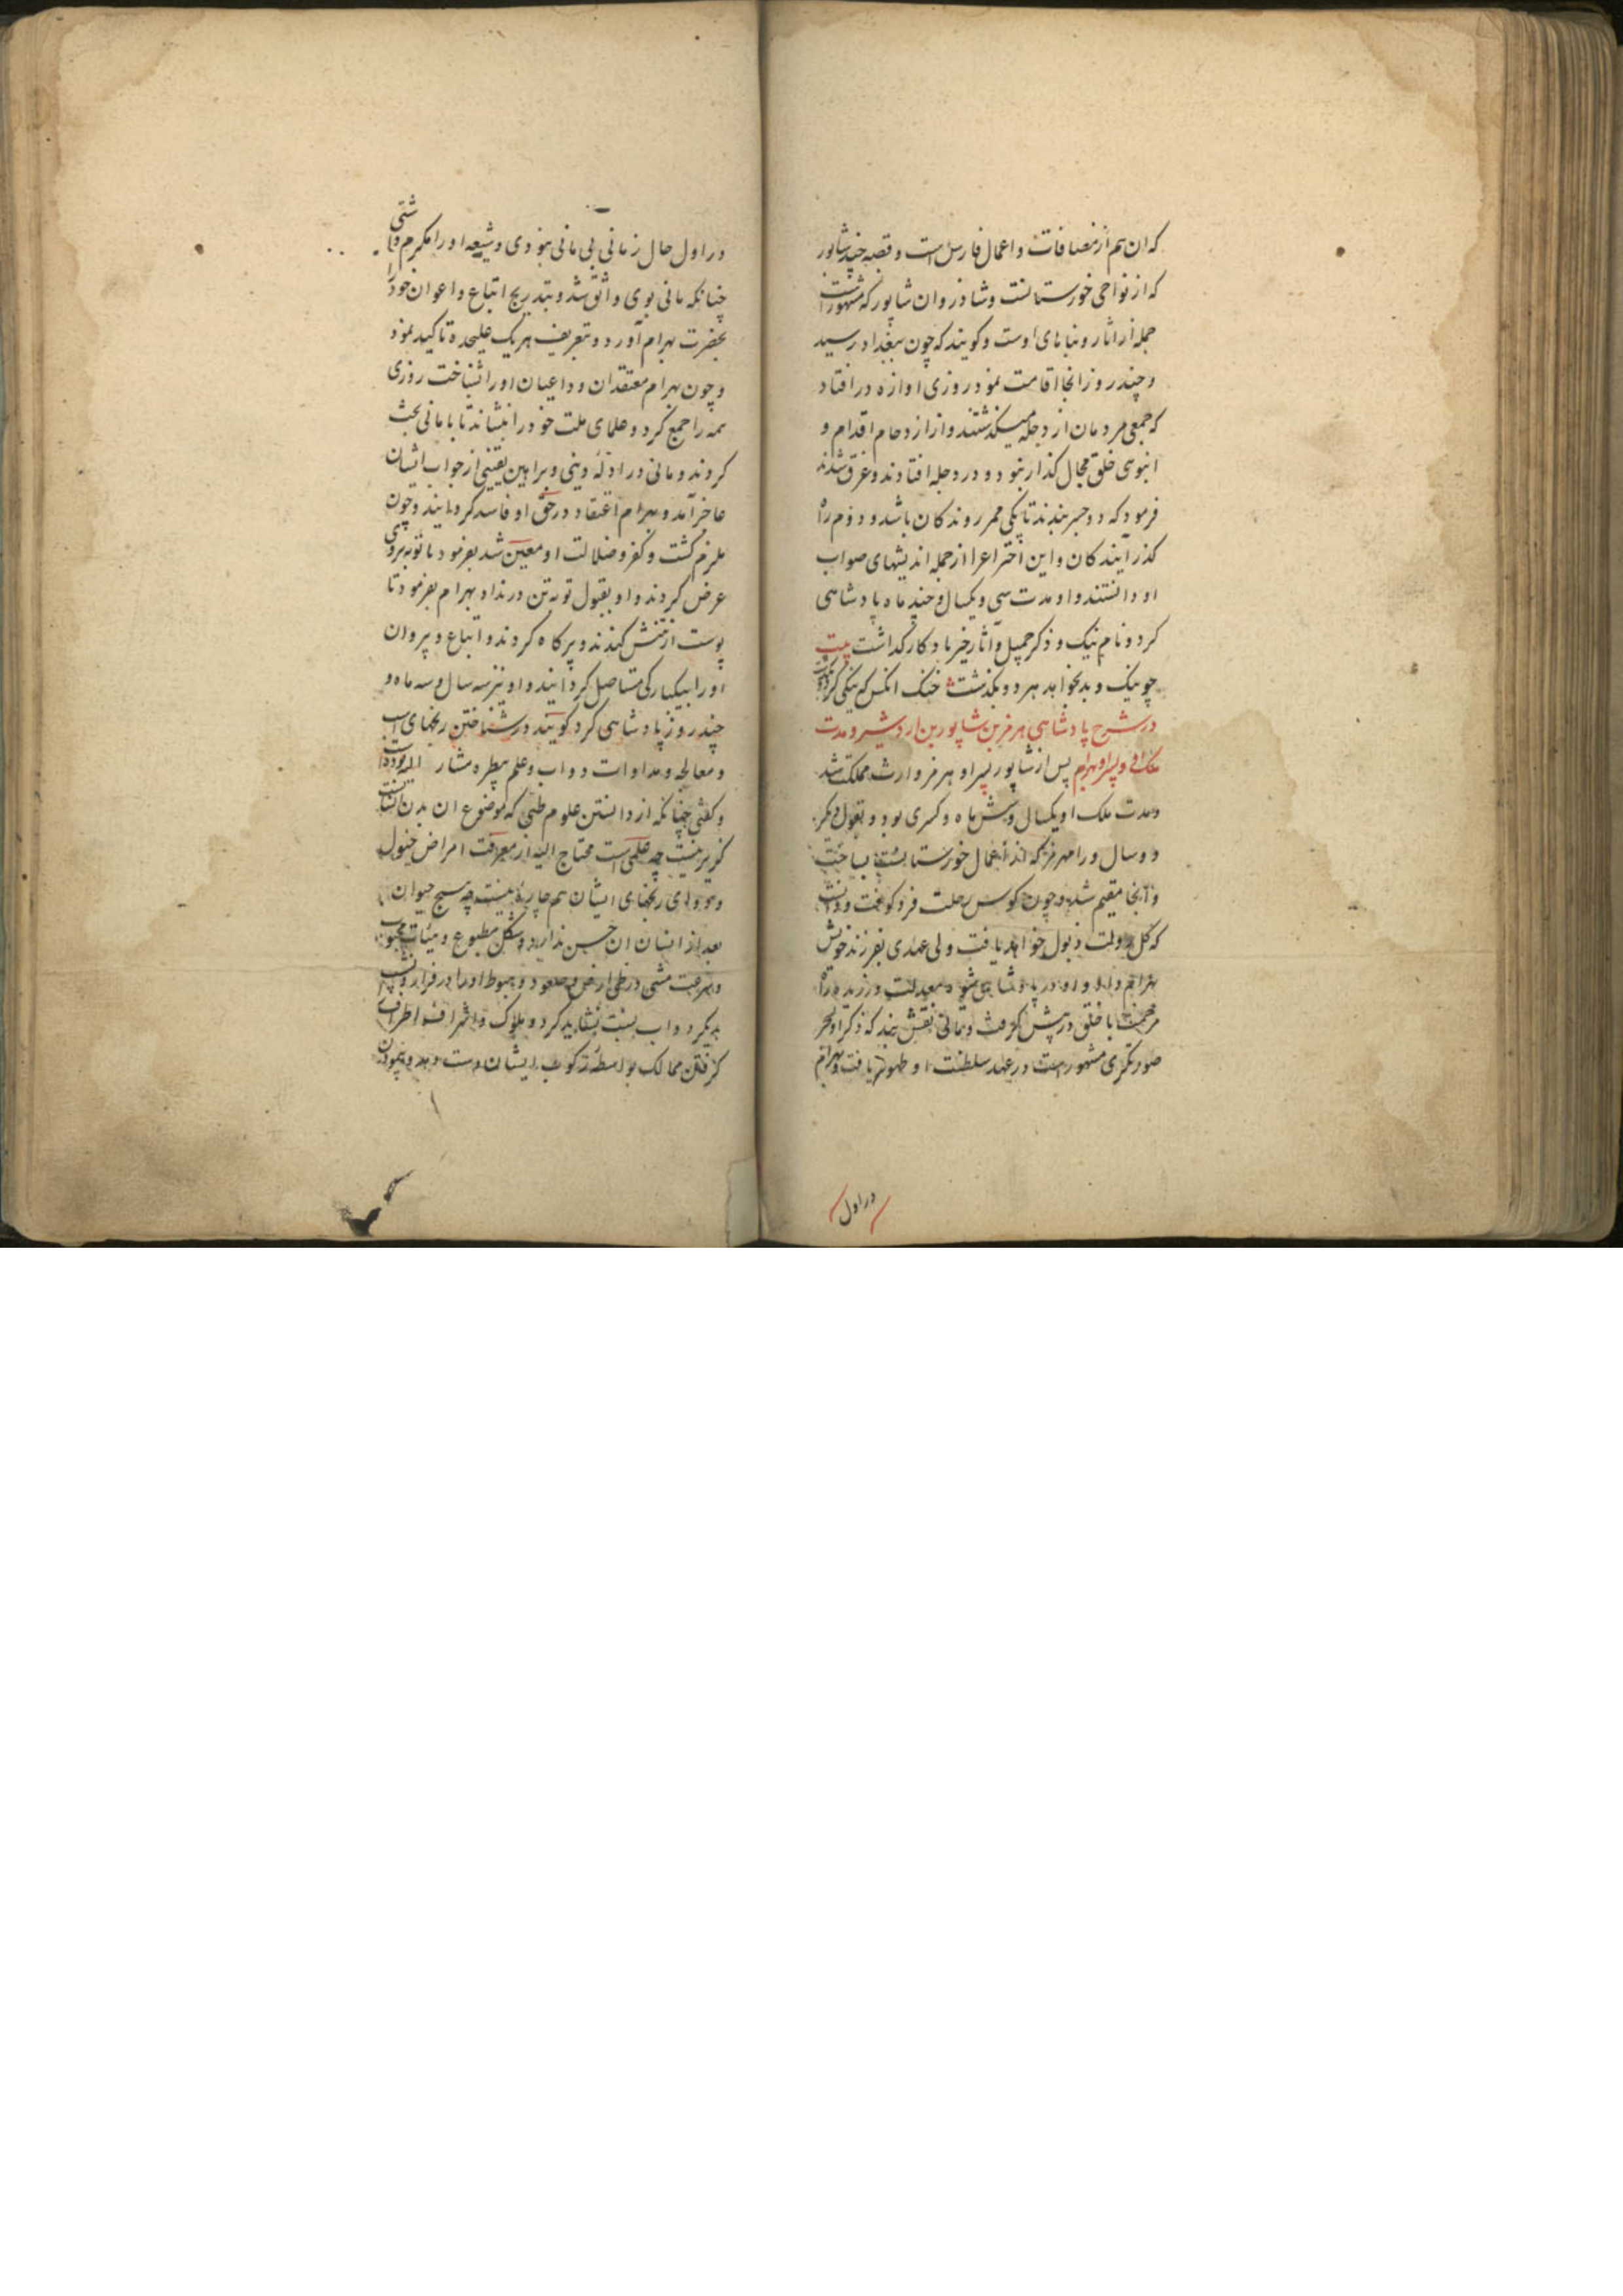 که ان هم از مضافات و اعمال فارس است و قصبه جندیشاپور
که از نواحی خورستانست و شادروان شاپور که مشهور است
جمله از اثار و بناهای اوست و کویند که چون ببغداد رسید
و چند روز انجا اقامت نمود روزی اوازه در افتاد
که جمعی مردمان از دجله میکذشتند و از ازدحام اقدام و
انبوهی خلق مجال کذار نبود و در دجله افتادند و غرق شدند
فرمود که دو جسر بندند تا یکی ممر روندکان باشد و دوم راه
کذر آیندکان و این اختراعرا از جمله اندیشهای صواب
او دانستند و او مدت سی و یکسال و چند ماه پادشاهی
کرد و نام نیک و ذکر جمیل و آثار خیر یادکار کذاشت بیت
چو نیک و بد بخواهد هر دو بکذشت خنک انکس که نیکی کرد
در شرح پادشاهی هرمز بن شاپور بن اردشیر و مدت
ملک او و پسر او بهرام پس از شاپور پسر او هرمز وارث مملکت شد
و مدت ملک او یکسال و شش ماه و کسری بود و بقول دیکر
دو سال و رامهرمز که از اعمال خورستانست بساخت
و آنجا مقیم شد و چون کوس رحلت فرو کوفت و دانست
که کل دولت ذبول خواهد یافت ولی عهدی بفرزند خویش
بهرام داد و او در پادشاهی شیوه معدلت ورزید و راه
مرحمت با خلق در پیش کرفت و مانی نقش بند که ذکر او بحر
صورتکری مشهور است در عهد سلطنت او ظهور یافت و بهرام
در اول
در اول حال زمانی بی مانی نبودی و شیعه او را مکرم داشتی
چنانکه مانی بوی واثق شد و بتدریج اتباع و اعوان خود را
بحضرت بهرام آورد و بتعریف هر یک علیحده تاکید نمود
و چون بهرام معتقدان و داعیان او را شناخت روزی
همه را جمع کرد و علمای ملت خود را بنشاند تا با مانی بحث
کردند و مانی در ادلهٔ دینی و براهین یقینی از جواب ایشان
عاجز آمد و بهرام اعتقاد در حق او فاسد کردانید و چون
ملزم کشت و کفر و ضلالت او معین شد بفرمود تا توبه بروی
عرض کردند و او بقبول توبه تن در نداد بهرام بفرمود تا
پوست از تنش کندند و پر کاه کردند و اتباع و پیروان
او را بیکبارکی مستاصل کردانید و او نیز سه سال و سه ماه و
چند روز پادشاهی کرد کویند در شناختن رنجهای اسب
و معالجه و مداوات دواب و علم بیطره مشار الیه بوده است
و کفتی چنانکه از دانستن علوم طبی که موضوع ان بدن انسانست
کزیر نیست چه علمی است محتاج الیه از معرفت امراض خیول
و دوای رنجهای ایشان هم چاره نیست چه هیچ حیوان
بعد از انسان ان حسن ندارد و شکل مطبوع و هیئات محبوب
و سرعت مشی در طی ارض و صعود و هبوط او را در فراز و نشیب
بدیکر دواب نسبت نشاید کرد و ملوک و اشراف اطراف
کرفتن ممالک بواسطه رکوب ایشان دست دهد و پیمودن